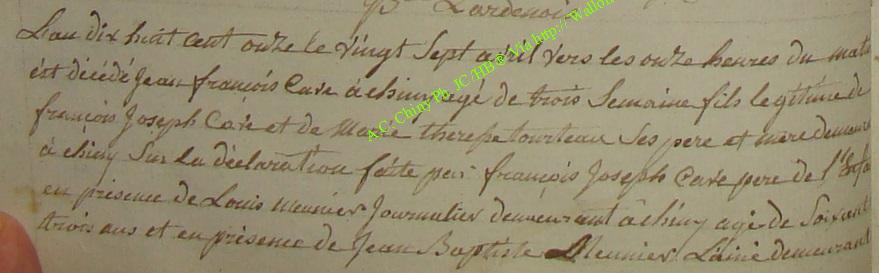 Lardenois
L'an dix huit cent onze le vingt Sept avril vers les onze heures du matin
est décédé Jean françois Care à chiny agé de trois Semaine fils legitime de
françois Joseph Care et de Marie therese tourteau Ses pere et mere demeurant
à chiny Sur la déclaration faite par françois Joseph Care pere de l'Enfant
en présence de Louis meunier Journalier demeurant à chiny agé de Soixante
trois ans et en présence de Jean Baptiste Meunier L'ainé demeurant
A.C. Chiny Ph. JC/HB @ Via http:// Wallon